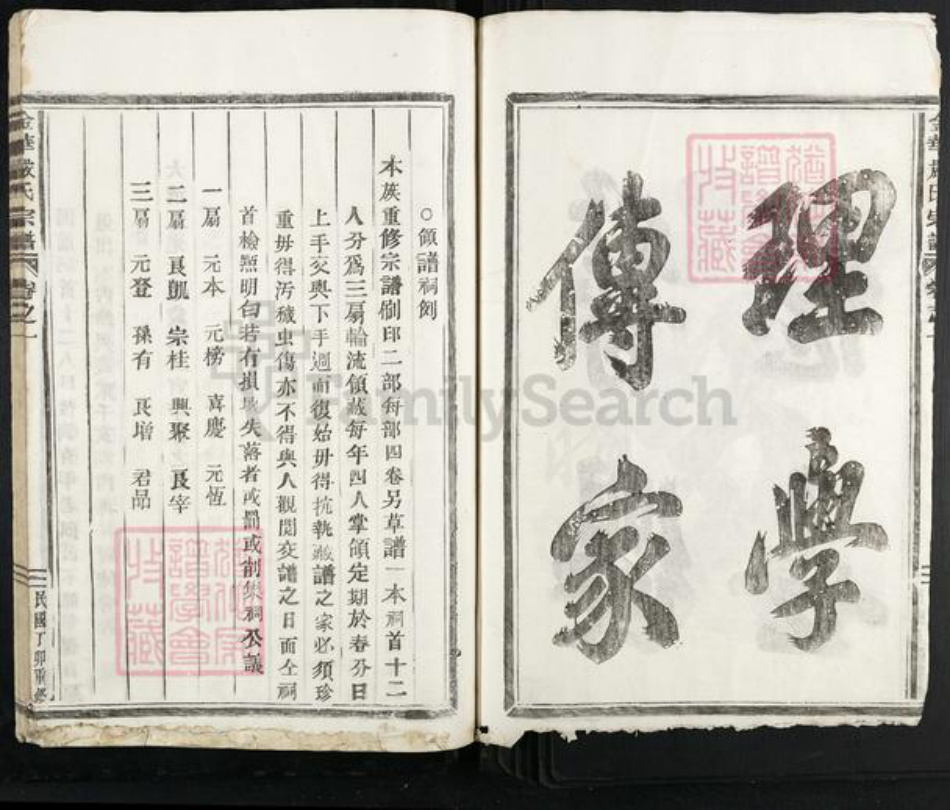 理學
傳家
金華嚴氏宗譜 卷之一
○領譜祠例
本族重修宗譜刷印二部每部四卷另草譜一本祠首十二
人分爲三扇輪流領藏每年四人掌領定期於春分日
上手交與下手週而復始毋得抗執藏譜之家必須珍
重毋得汚穢虫傷亦不得與人觀閱交譜之日面仝祠
首檢點明白若有損壞失落者或罰或削集祠公議
一扇 元本 元榜 喜慶 元恆
二扇 良凱 宗桂 興聚 良宰
三扇 元登 孫有 良增 君品
金華嚴氏宗譜 卷之一
民國丁卯重修
FamilySearch